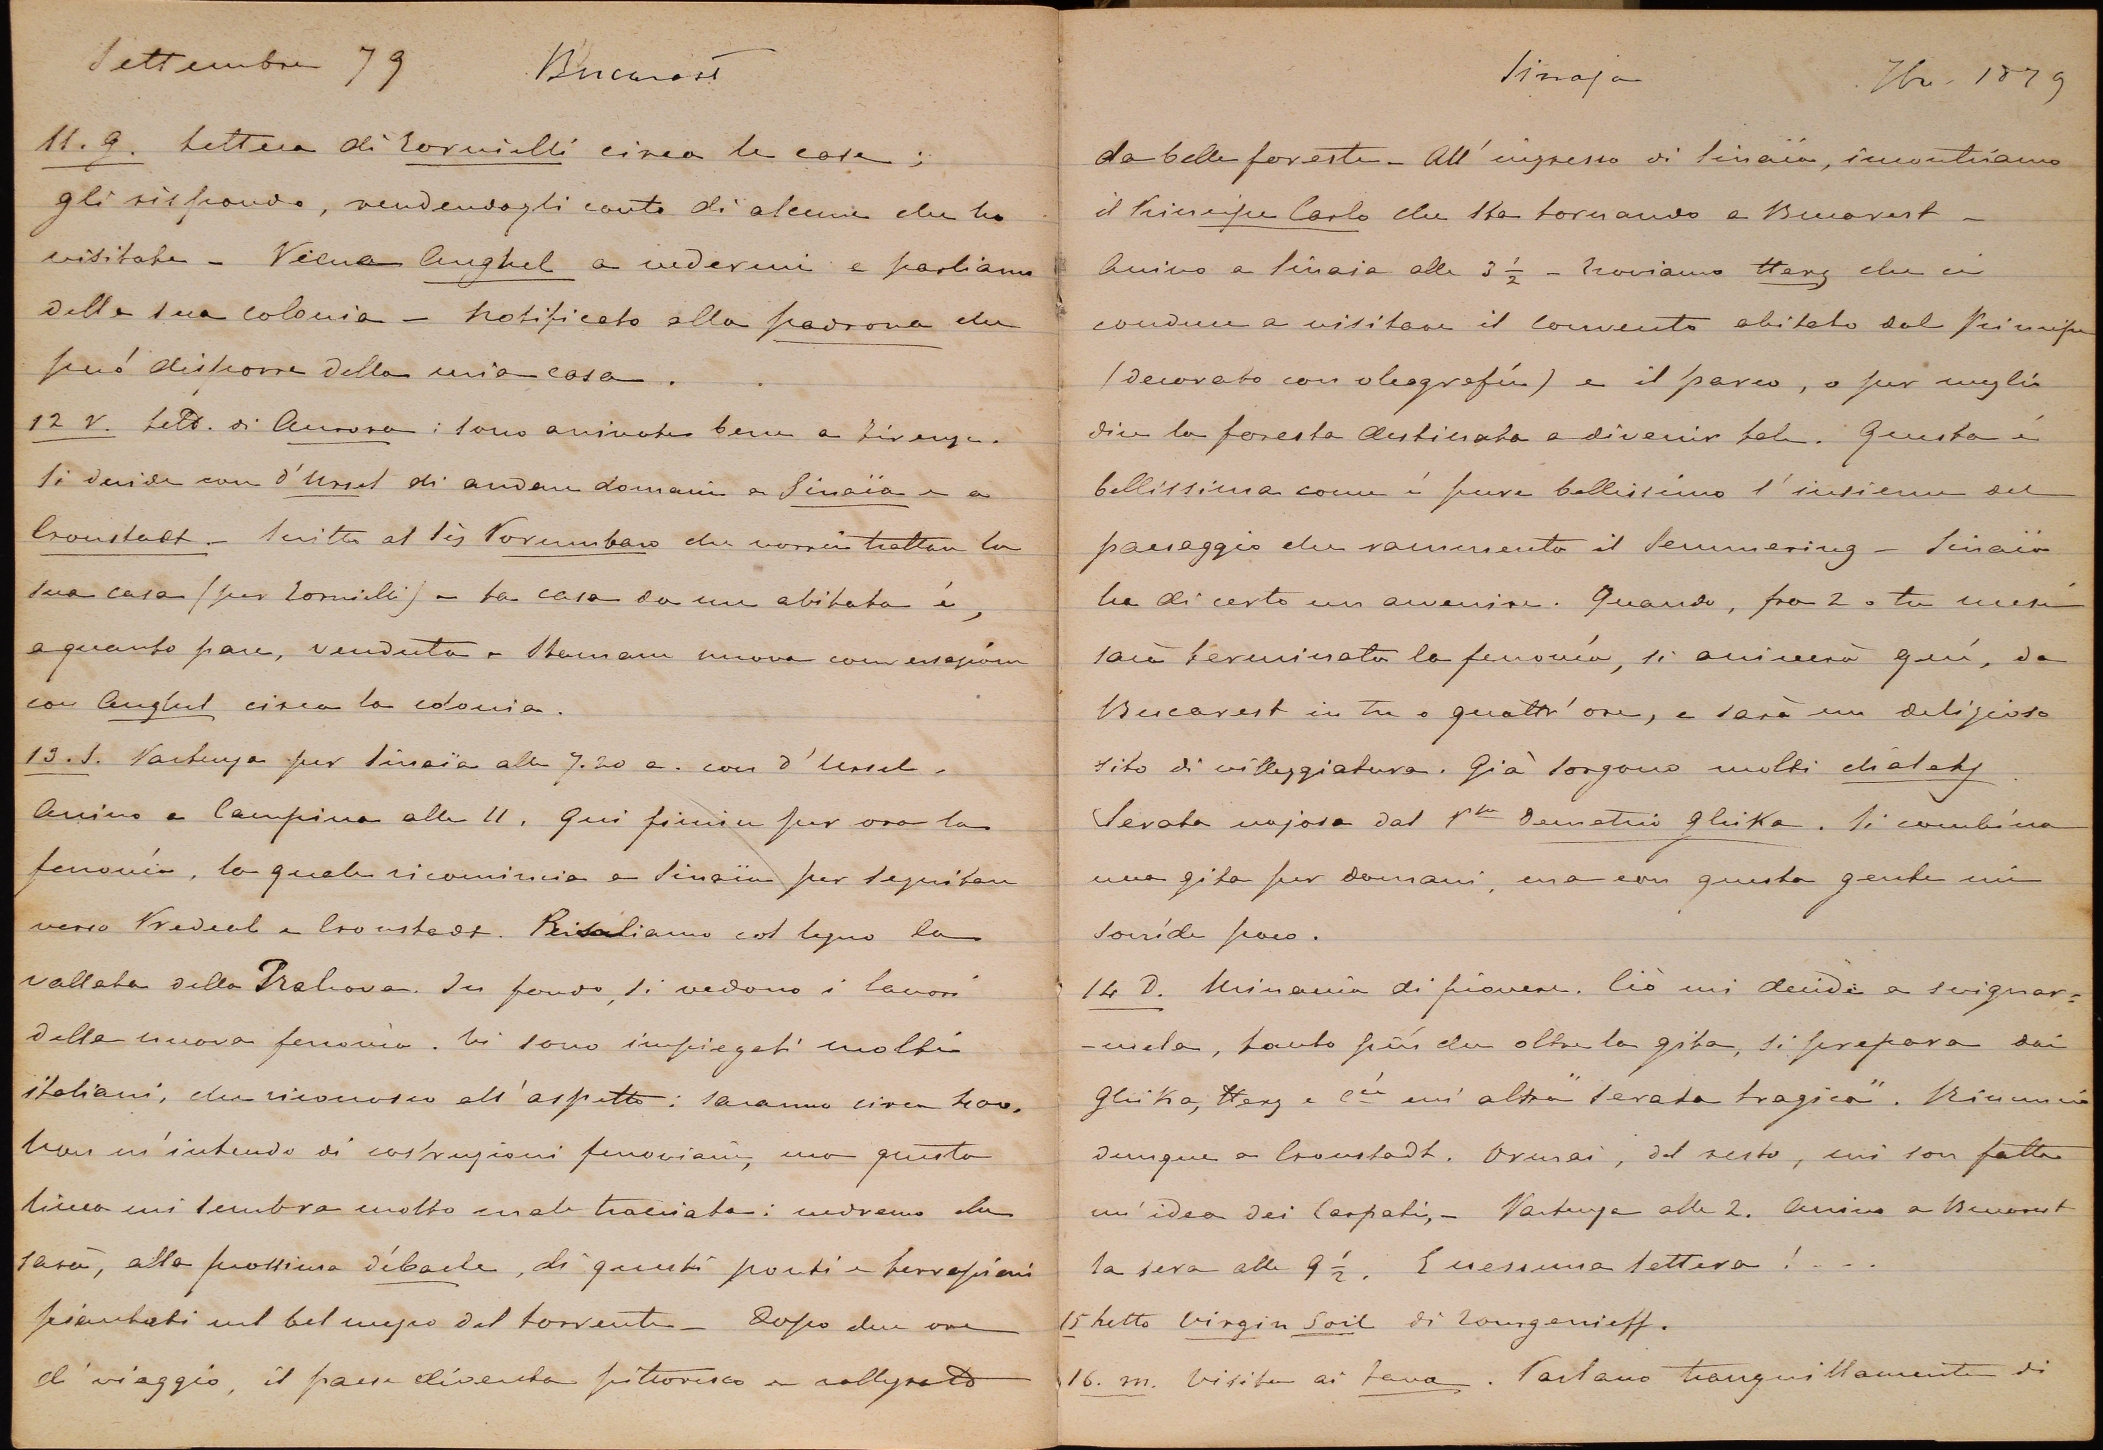 Settembre 79 Bucarest
11. g. Lettera di Tornielli circa le case ;
gli rispondo, rendendogli conto di alcune che ho
visitate - Viene Anghel a vedermi e parliamo
della sua colonia - Notificato alla padrona che
può disporre della mia casa .
12 v. Lett. di Aurora : sono arrivate bene a Firenze.
Si decide con d'Ursel di andare domani a Sinaïa e a
Cronstadt - Scritto al Sig Porumbaro che vorrei trattare la
sua casa (per Tornielli) - La casa da me abitata è,
a quanto pare, venduta - Stamane nuova conversazione
con Anghel circa la colonia.
13. S. Partenza per Sinaïa alle 7.20 a. con d'Ursel -
Arrivo a Campina alle 11. Qui finisce per ora la
ferrovia, la quale ricomincia a Sinaïa per seguitare
verso Predeal e Cronstadt. Risaliamo col legno la
vallata della Prahova. In fondo, si vedono i lavori
della nuova ferrovia. Vi sono impiegati molti
italiani, che riconosco all'aspetto : saranno circa
Non m'intendo di costruzioni ferroviarie, ma questa
linea mi sembra molto male tracciata : vedremo che
sarà, alla prossima débacle, di questi ponti e terrapieni
piantati nel bel mezzo del torrente - Dopo due ore
di viaggio, il paese diventa pittoresco e rallegrato
Sinaja 7bre 1879
da belle foreste - All'ingresso di Sinaïa, incontriamo
il Principe Carlo che sta tornando a Bucarest -
Arrivo a Sinaia alle 3 1/2 - Troviamo Herz che ci
conduce a visitare il convento abitato dal Principe
(decorato con oleografie) e il parco, o per meglio
dire la foresta destinata a divenir tale. Questa è
bellissima come è pure bellissimo l'insieme del
paesaggio che rammenta il Semmering - Sinaïa
ha di certo un avvenire. Quando, fra 2 o tre mesi
sarà terminata la ferrovia, si arriverà qui, da
Bucarest in tre o quattr'ore, e sarà un delizioso
sito di villeggiatura. Già sorgono molti chalets
Serata nojosa dal Pce Demetrio Ghika. Si combina
una gita per domani, ma con questa gente mi
sorride poco.
14 D. Minaccia di piovere. Ciò mi decide a svignar=
-mela, tanto più che oltre la gita, si prepara dai
Ghika, Herz e Cie un'altra "serata tragica". Rinuncio
dunque a Cronstadt. Ormai, del resto, mi son fatta
un'idea dei Carpati, - Partenza alle 2. Arrivo a Bucarest
la sera alle 9 1/2. E nessuna lettera ! . . .
15 Letto Virgin Soil di Tourgenieff.
16. m. Visita ai . Parlano tranquillamente di